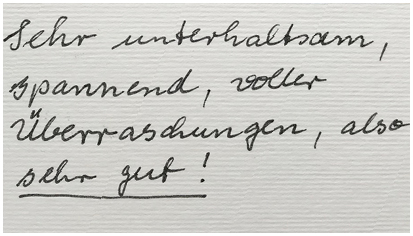 Sehr unterhaltsam,
spannend, voller
Überraschungen, also
sehr gut!